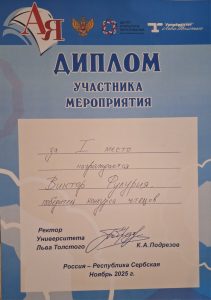 АЯ
ДИПЛОМ
УЧАСТНИКА
МЕРОПРИЯТИЯ
за I место
награждается
Виктор
победитель конкурса чтецов
Ректор
Университета
Льва Толстого
К.А.Подрезов
Россия – Республика Сербская
Ноябрь 2025 г.